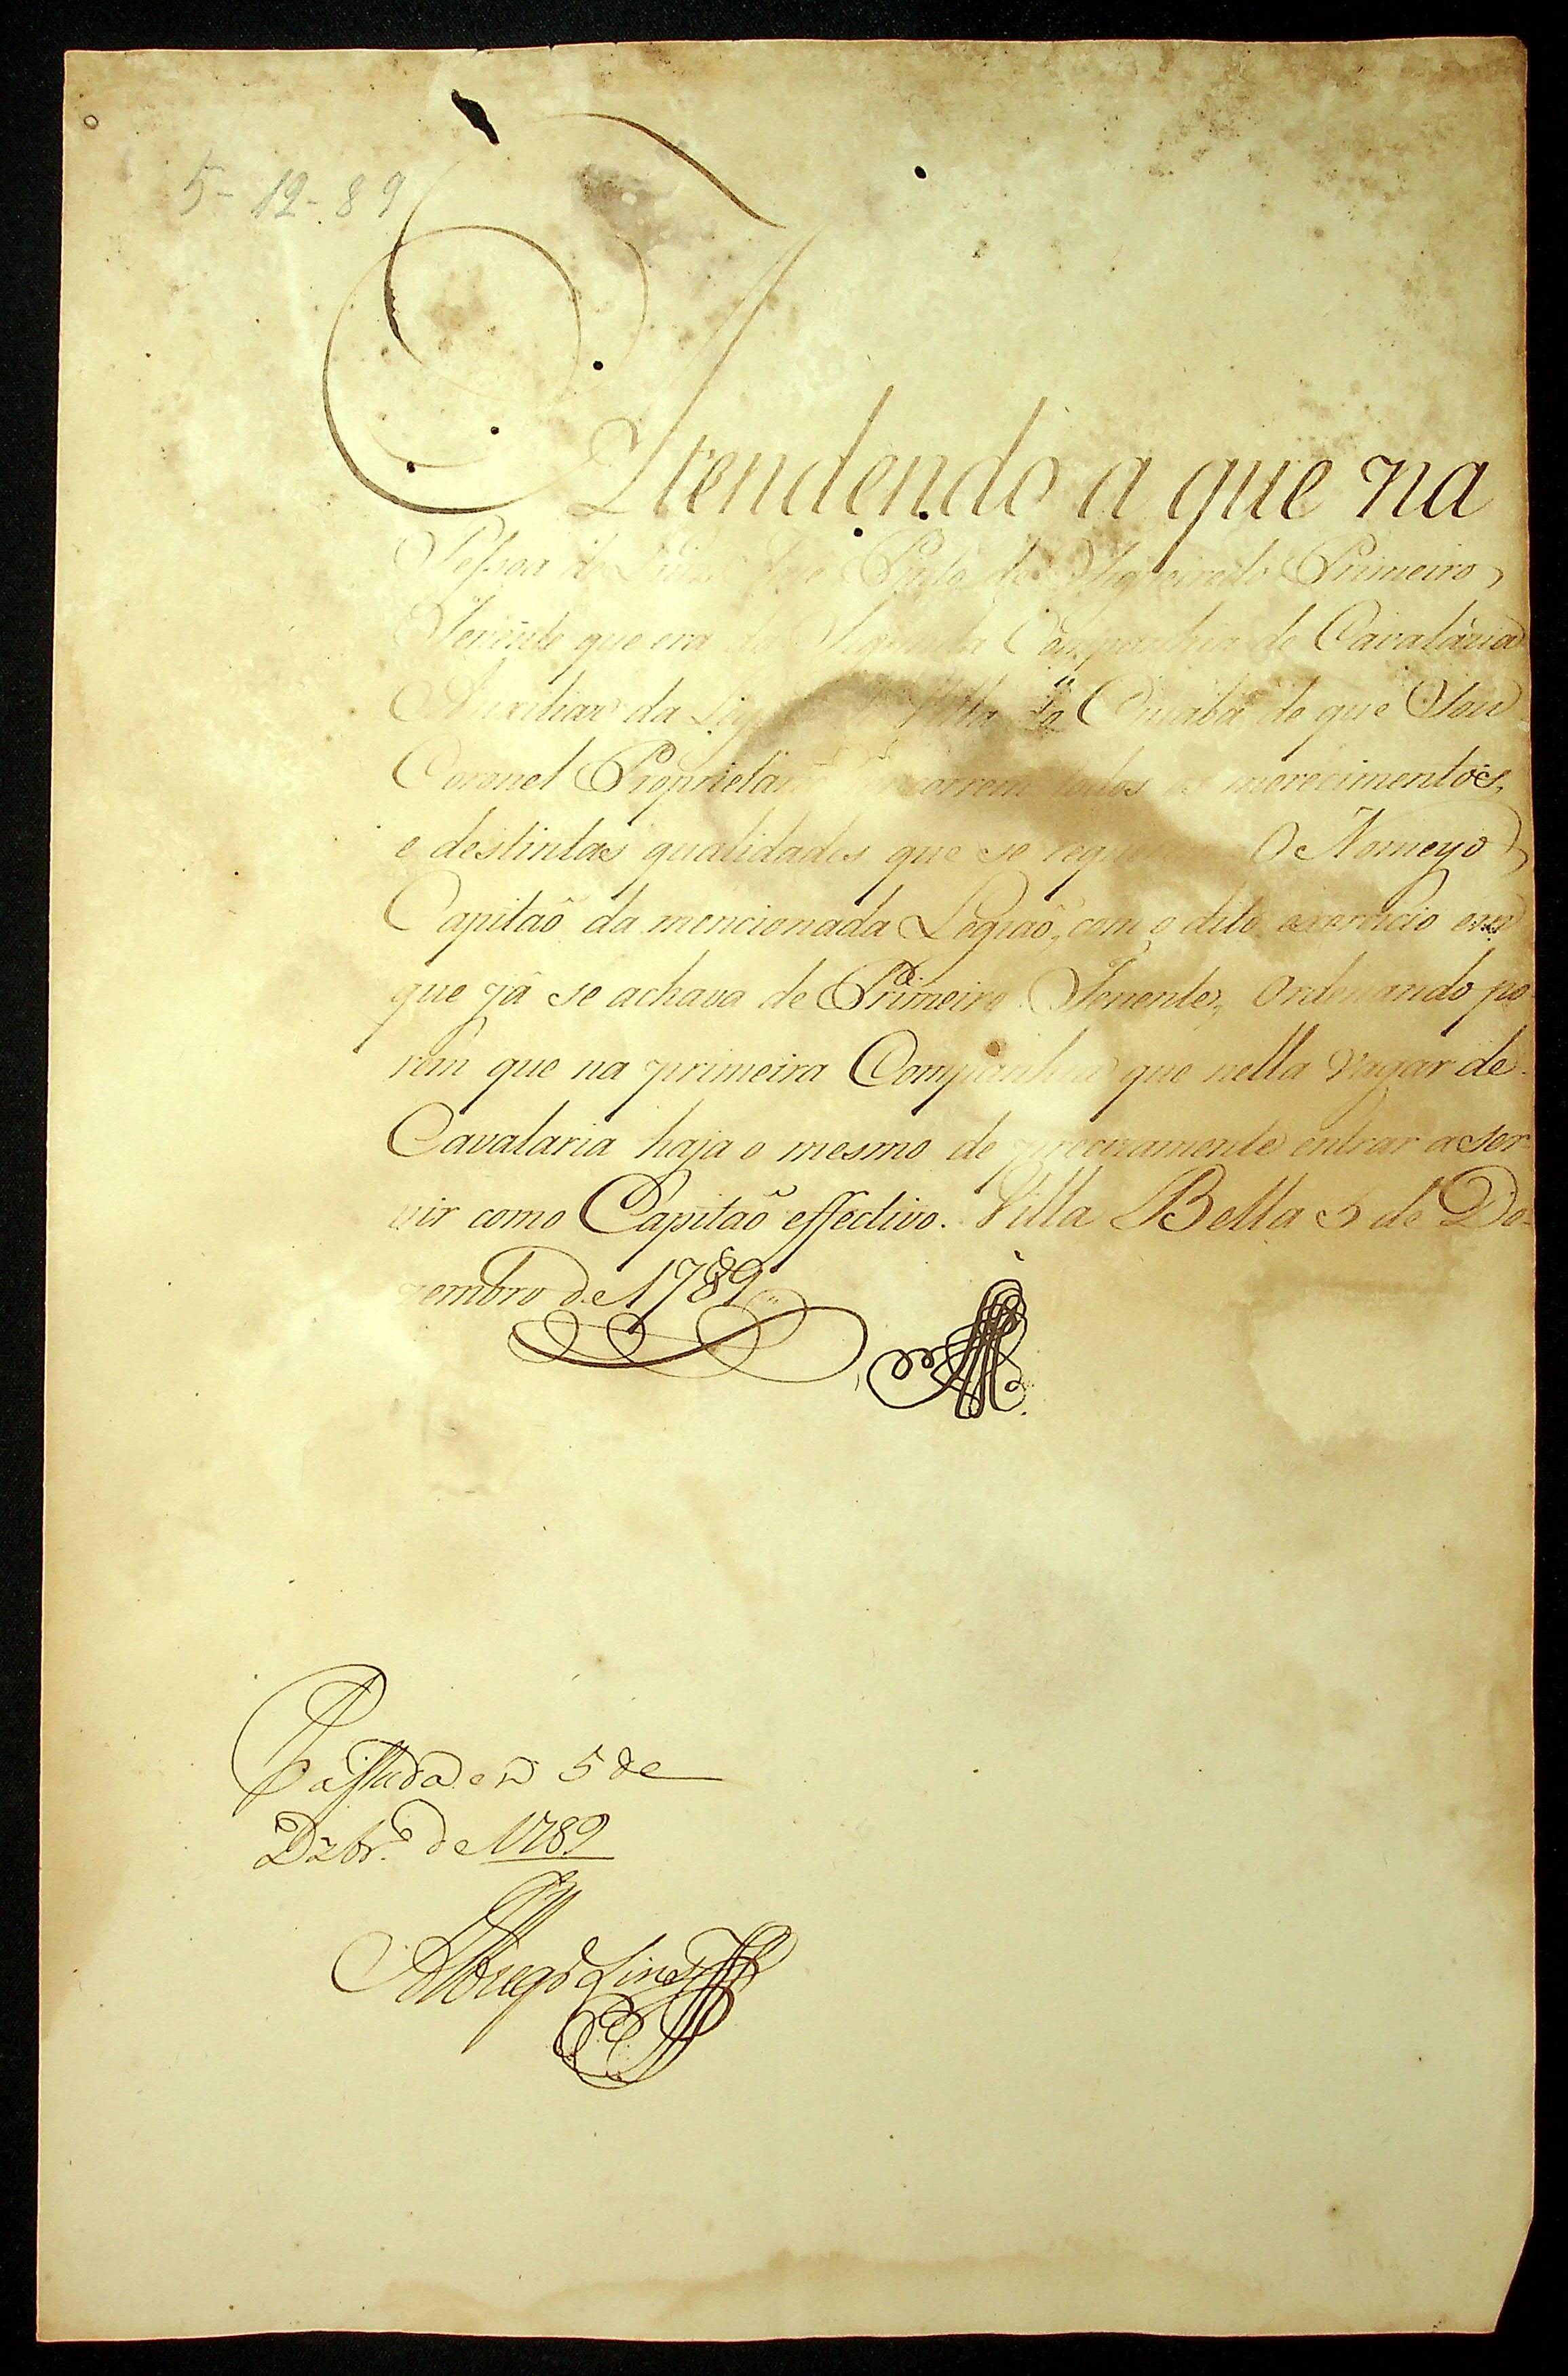 5-12-89
Attendendo a que na
Pessoa de José Pinto de Figueiredo Primeiro
Tenente que era da Segunda Companhia de Cavalaria
Auxiliar da Villa do Cuiabá de que Sou
Coronel Proprietario concorrem todos os merecimentos,
e destintas qualidades que se requerem O Nomeyo
Capitaõ da mencionada Legiaõ, com o dito exercicio em
que já se achava de Primeiro Tenente, Ordenando po-
rêm que na primeira Companhia que nella vagar de
Cavalaria haja o mesmo de precizamente entrar a ser-
vir como Capitaõ effectivo. Villa Bella 5 de De-
zembro de 1789
Passada em 5 de
Dzbr.º de 1789